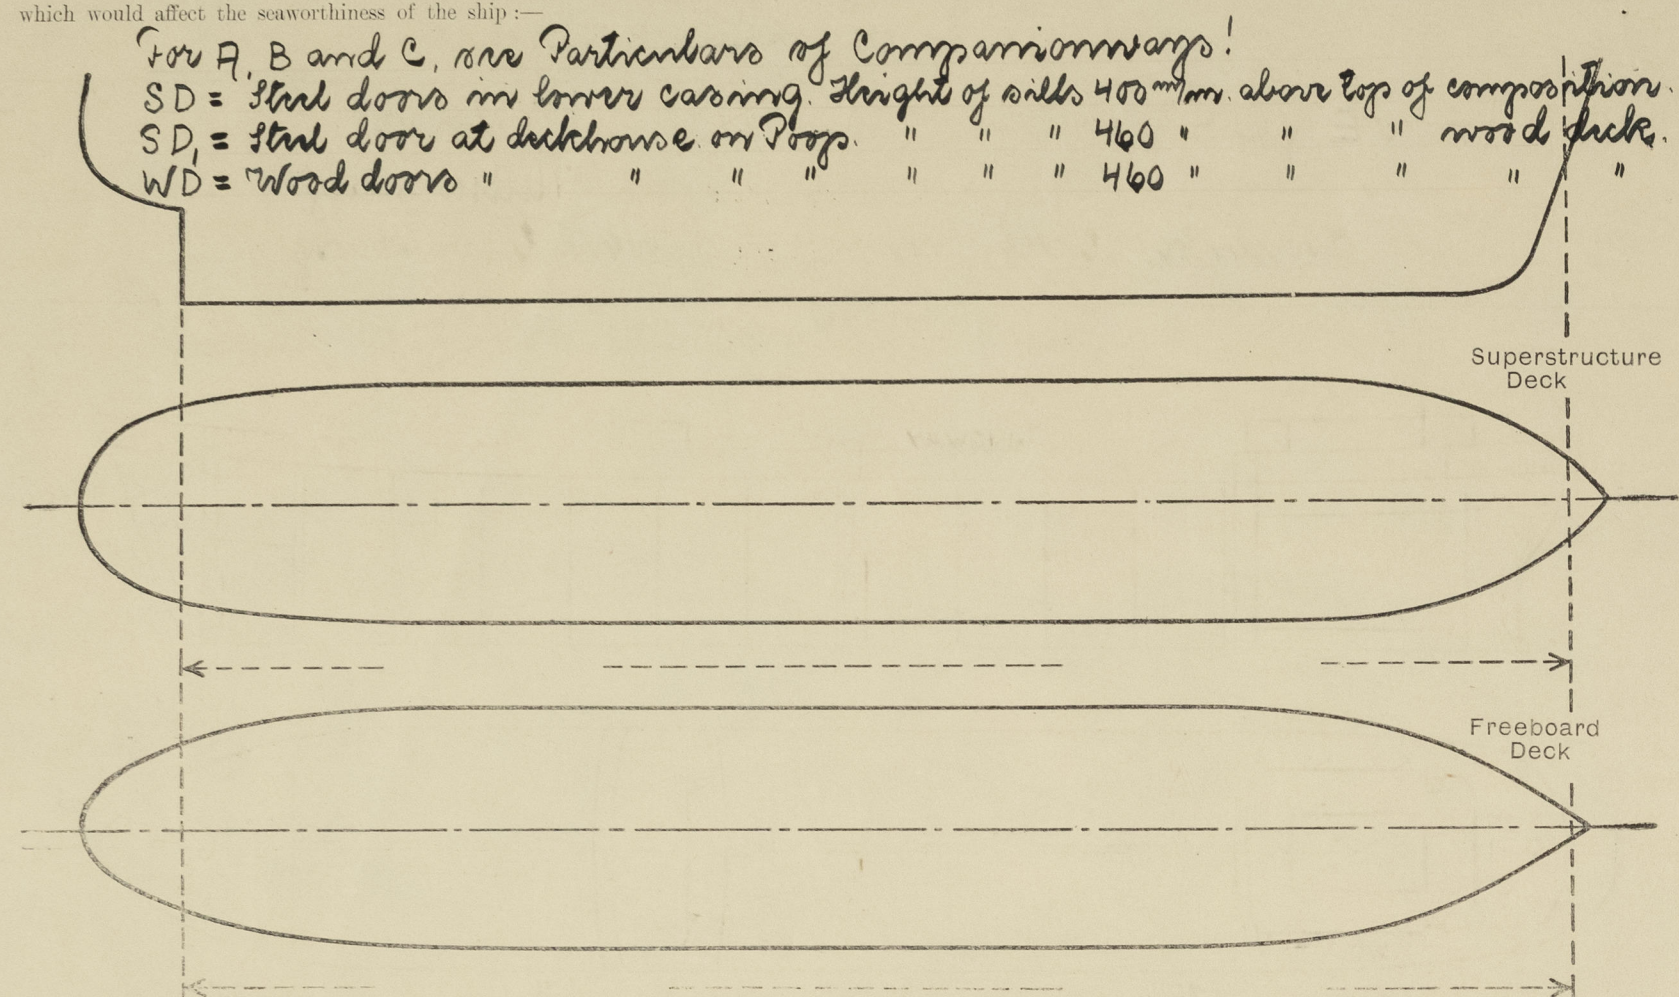 which would affect the seaworthiness of the ship :—
For A, B and C, see Particulars of Companionways!
SD = Steel doors in lower casing. Height of sills 400 m/m. above top of composition.
SD₁ = Steel door at deckhouse on Poop. " " " 460 " " " wood deck.
WD = Wood doors " " " " " " " 460 " " " " "
Superstructure
Deck
Freeboard
Deck